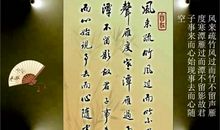 风来疏竹风过而竹不留声雁
度寒潭雁过而潭不留影故君
子事来而心始现事去而心随
空
風来疏竹風過而竹不留
聲雁度寒潭雁過而潭
不留影故君子事來
而心始現事去而心隨